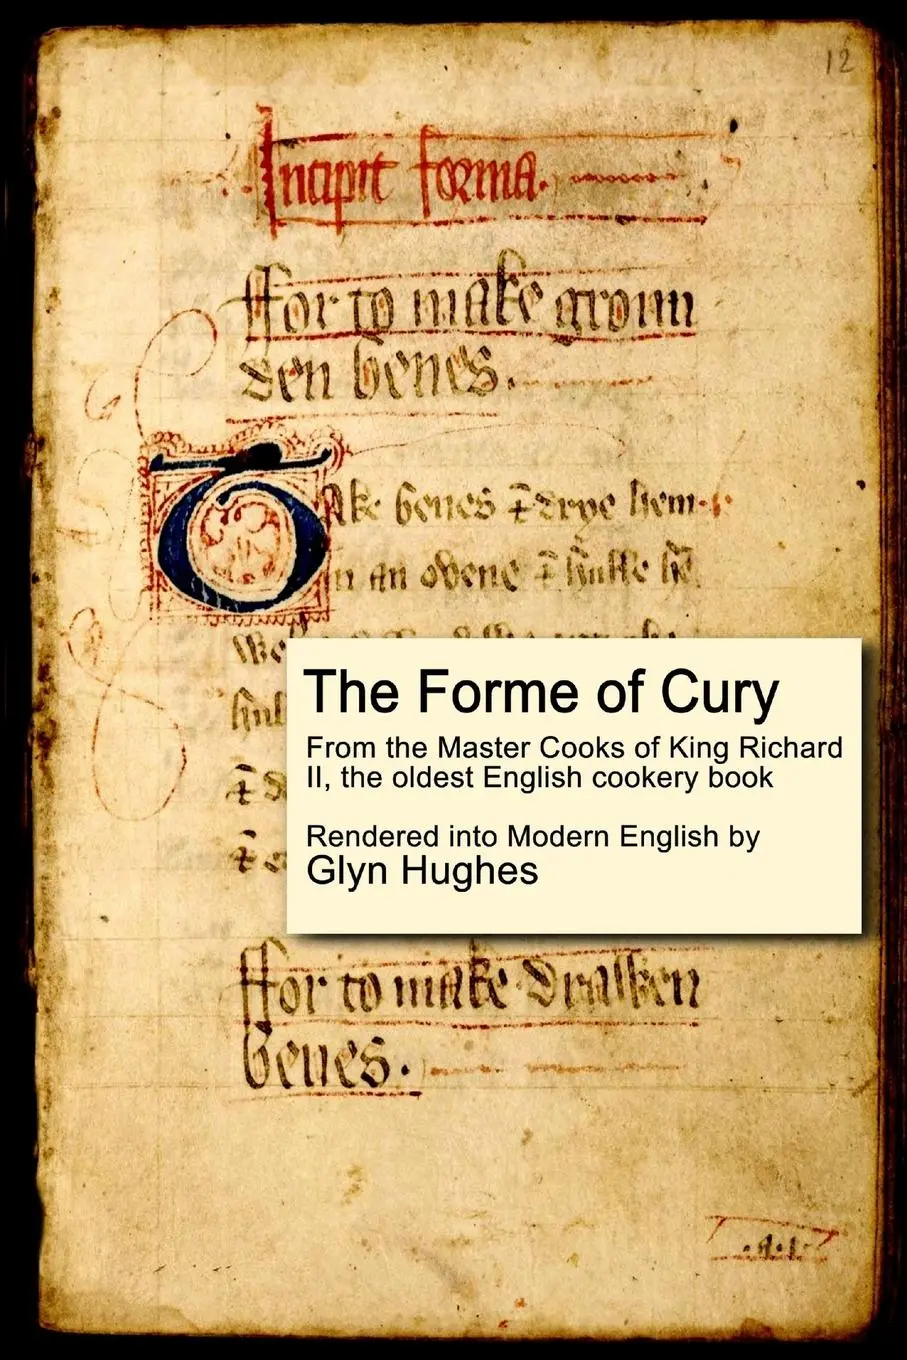 12
Incipit forma.
ffor to make groun
den benes.
Take benes & drye hem
in an ovene & hulke hē
We
hul
& d
& e
The Forme of Cury
From the Master Cooks of King Richard
II, the oldest English cookery book
Rendered into Modern English by
Glyn Hughes
ffor to make drawen
benes.